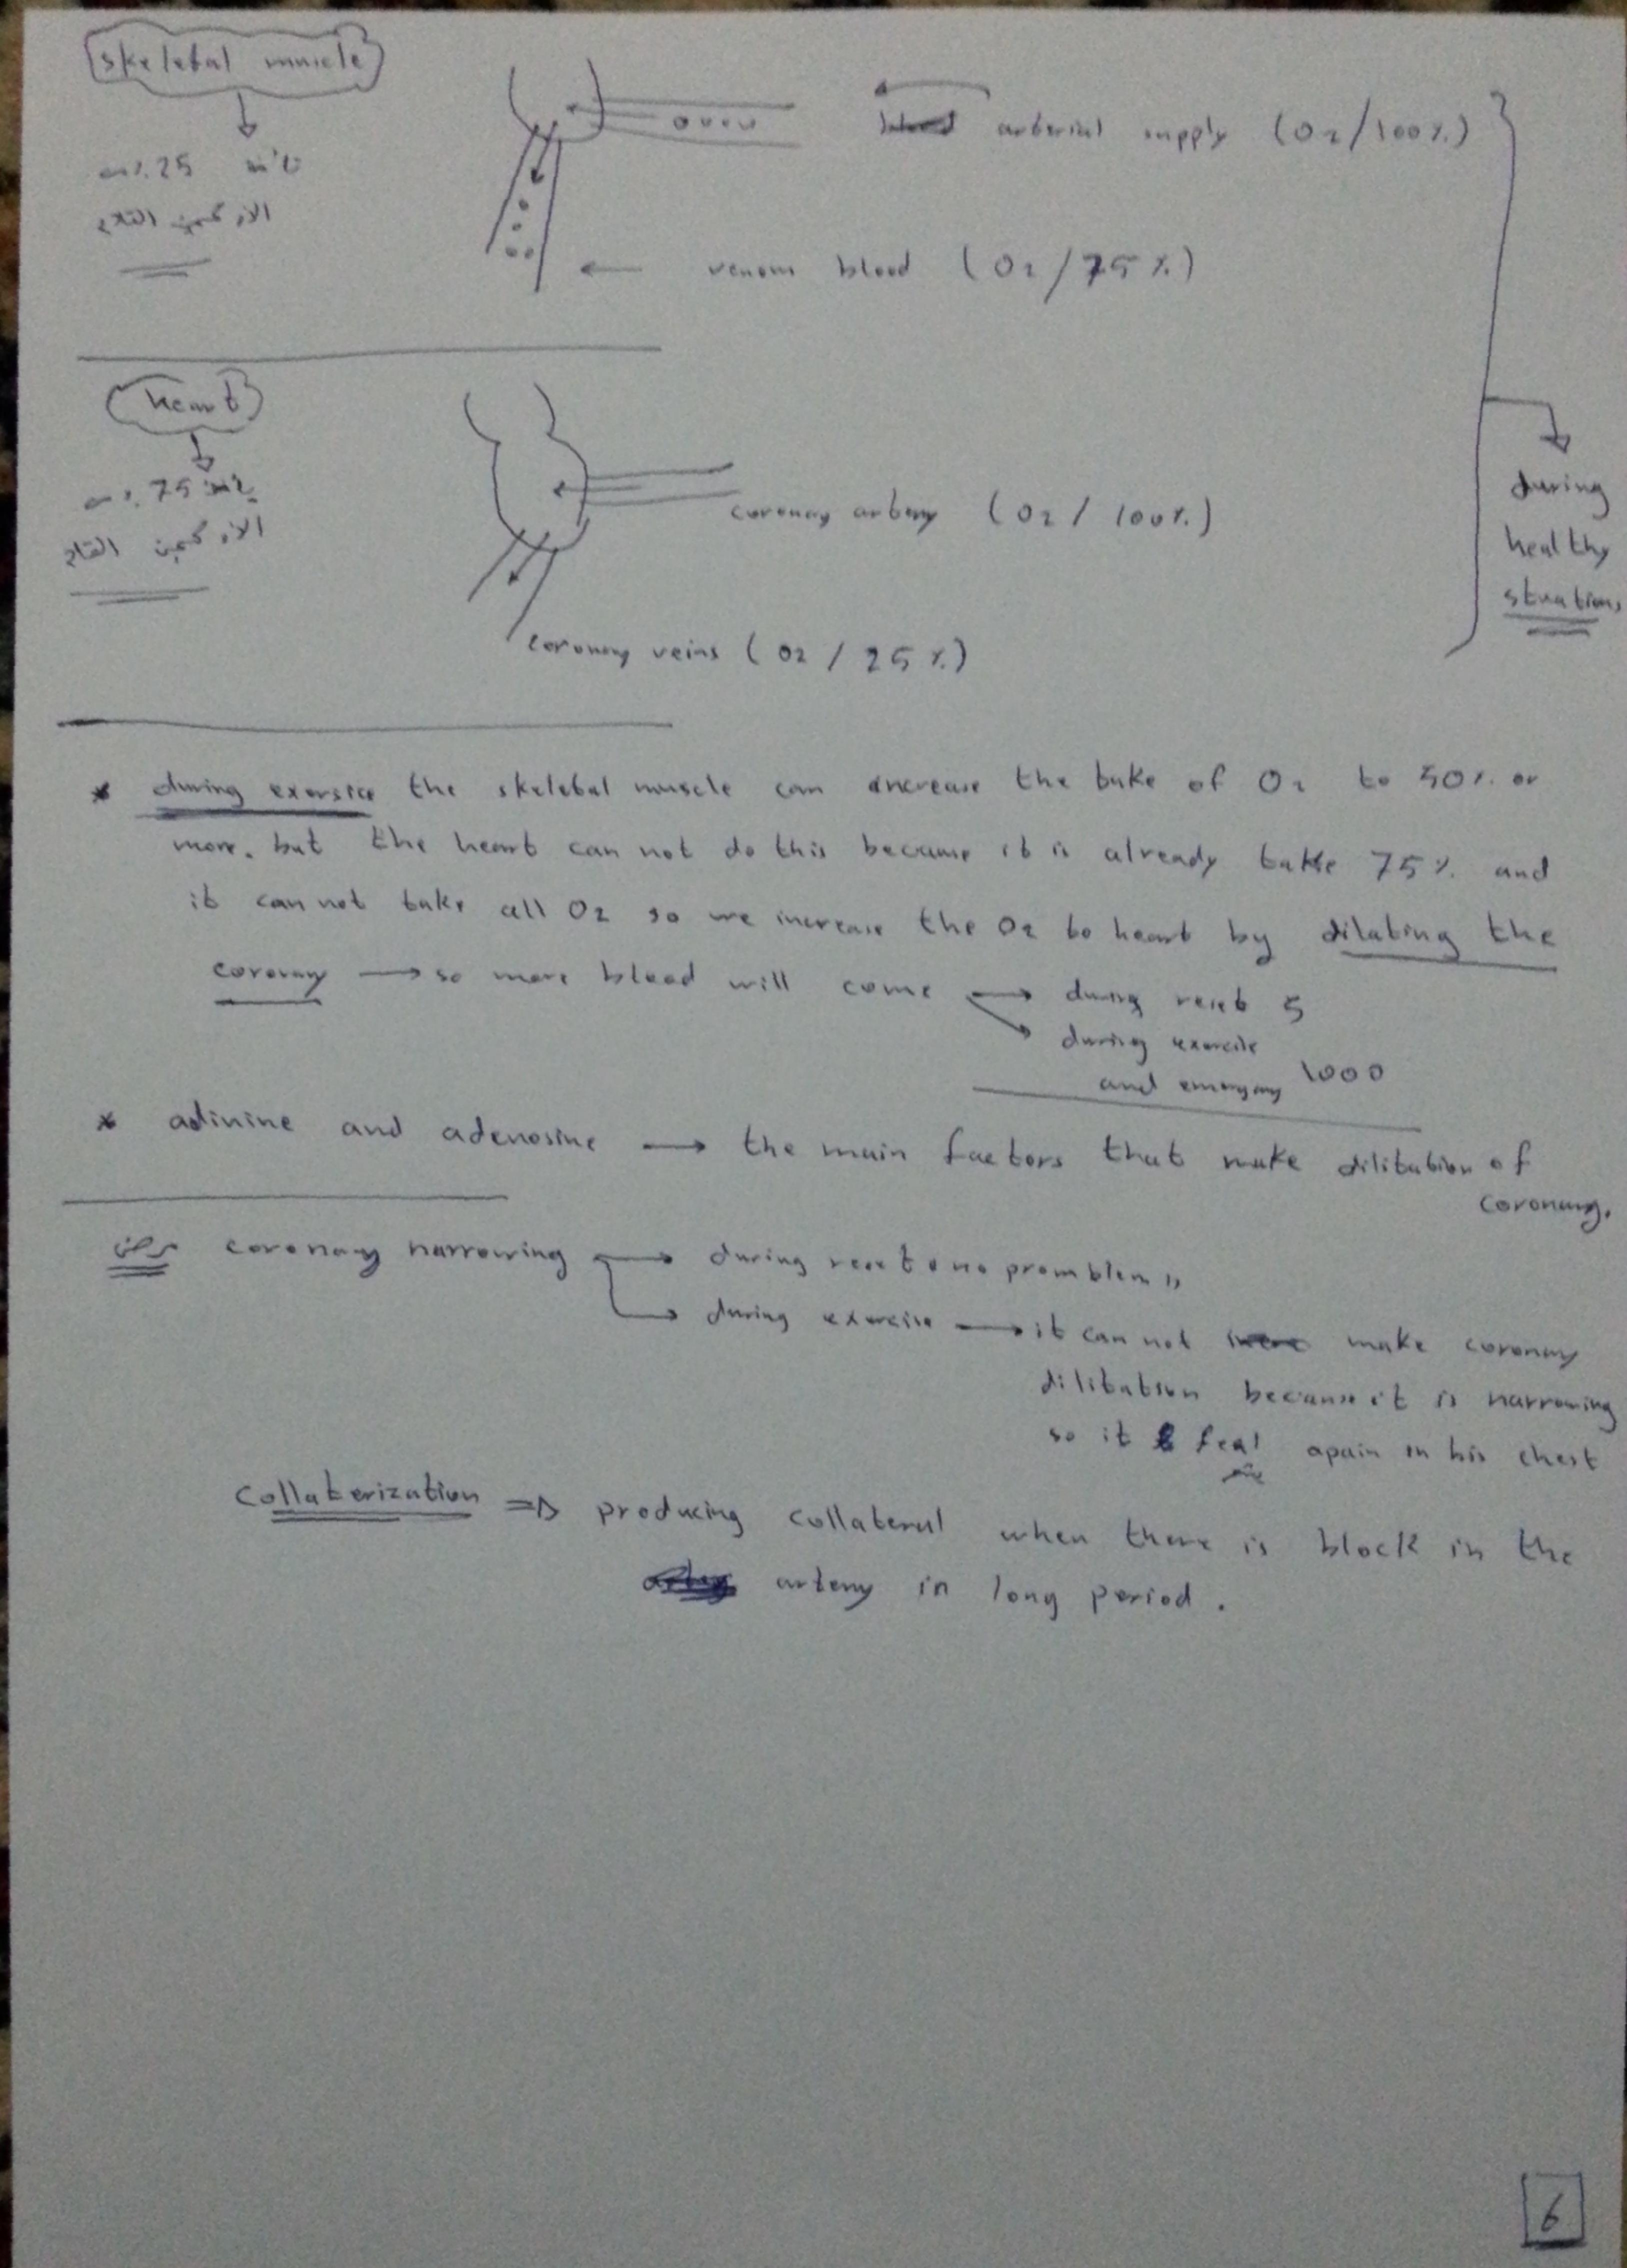 skeletal muscle
25 ٪ من
الاوكسجين القادم
arterial supply (O2/100%)
venous blood (O2/75%)
heart
يأخذ 75 ٪ من
الاوكسجين القادم
coronay artery (O2/100%)
coronary veins (O2/25%)
during
healthy
stuations
* during exersice the skeletal muscle can increase the take of O2 to 50% or
more. but the heart can not do this because it is already take 75% and
it can not take all O2 so we increase the O2 to heart by dilating the
coronary → so more blood will come → during reset 5
during exercise
and emergency 1000
* adinine and adenosine → the main factors that make dilitation of
coronary.
coronary narrowing → during reset no promblem
→ during exercise → it can not make coronay
dilitation because it is narrowing
so it feal apain in his chest
Collaterization ⇒ producing collateral when there is block in the
artery in long period.
6